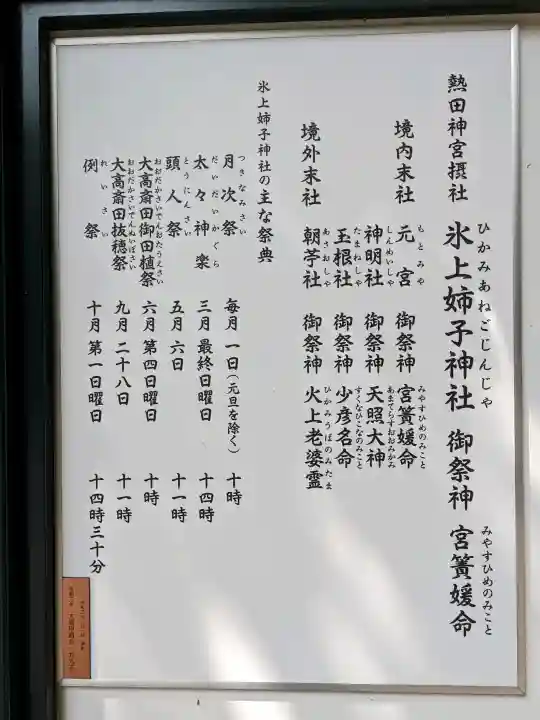 熱田神宮摂社 氷上姉子神社 御祭神 宮簀媛命
ひかみあねごじんじゃ みやすひめのみこと
境内末社 元宮 御祭神 宮簀媛命
もとみや みやすひめのみこと
神明社 御祭神 天照大神
しんめいしゃ あまてらすおおみかみ
境外末社 玉根社 御祭神 少彦名命
たまねしゃ すくなひこなのみこと
朝苧社 御祭神 火上老婆霊
あさおしゃ ひかみうばのみたま
氷上姉子神社の主な祭典
月次祭 毎月 一日(元旦を除く) 十時
つきなみさい
太々神楽 三月 最終日曜日 十四時
だいだいかぐら
頭人祭 五月 六日 十一時
とうにんさい
大高斎田御田植祭 六月 第四日曜日 十時
おおだかさいでんおたうえさい
大高斎田抜穂祭 九月 二十八日 十一時
おおだかさいでんぬいぼさい
例祭 十月 第一日曜日 十四時三十分
れいさい